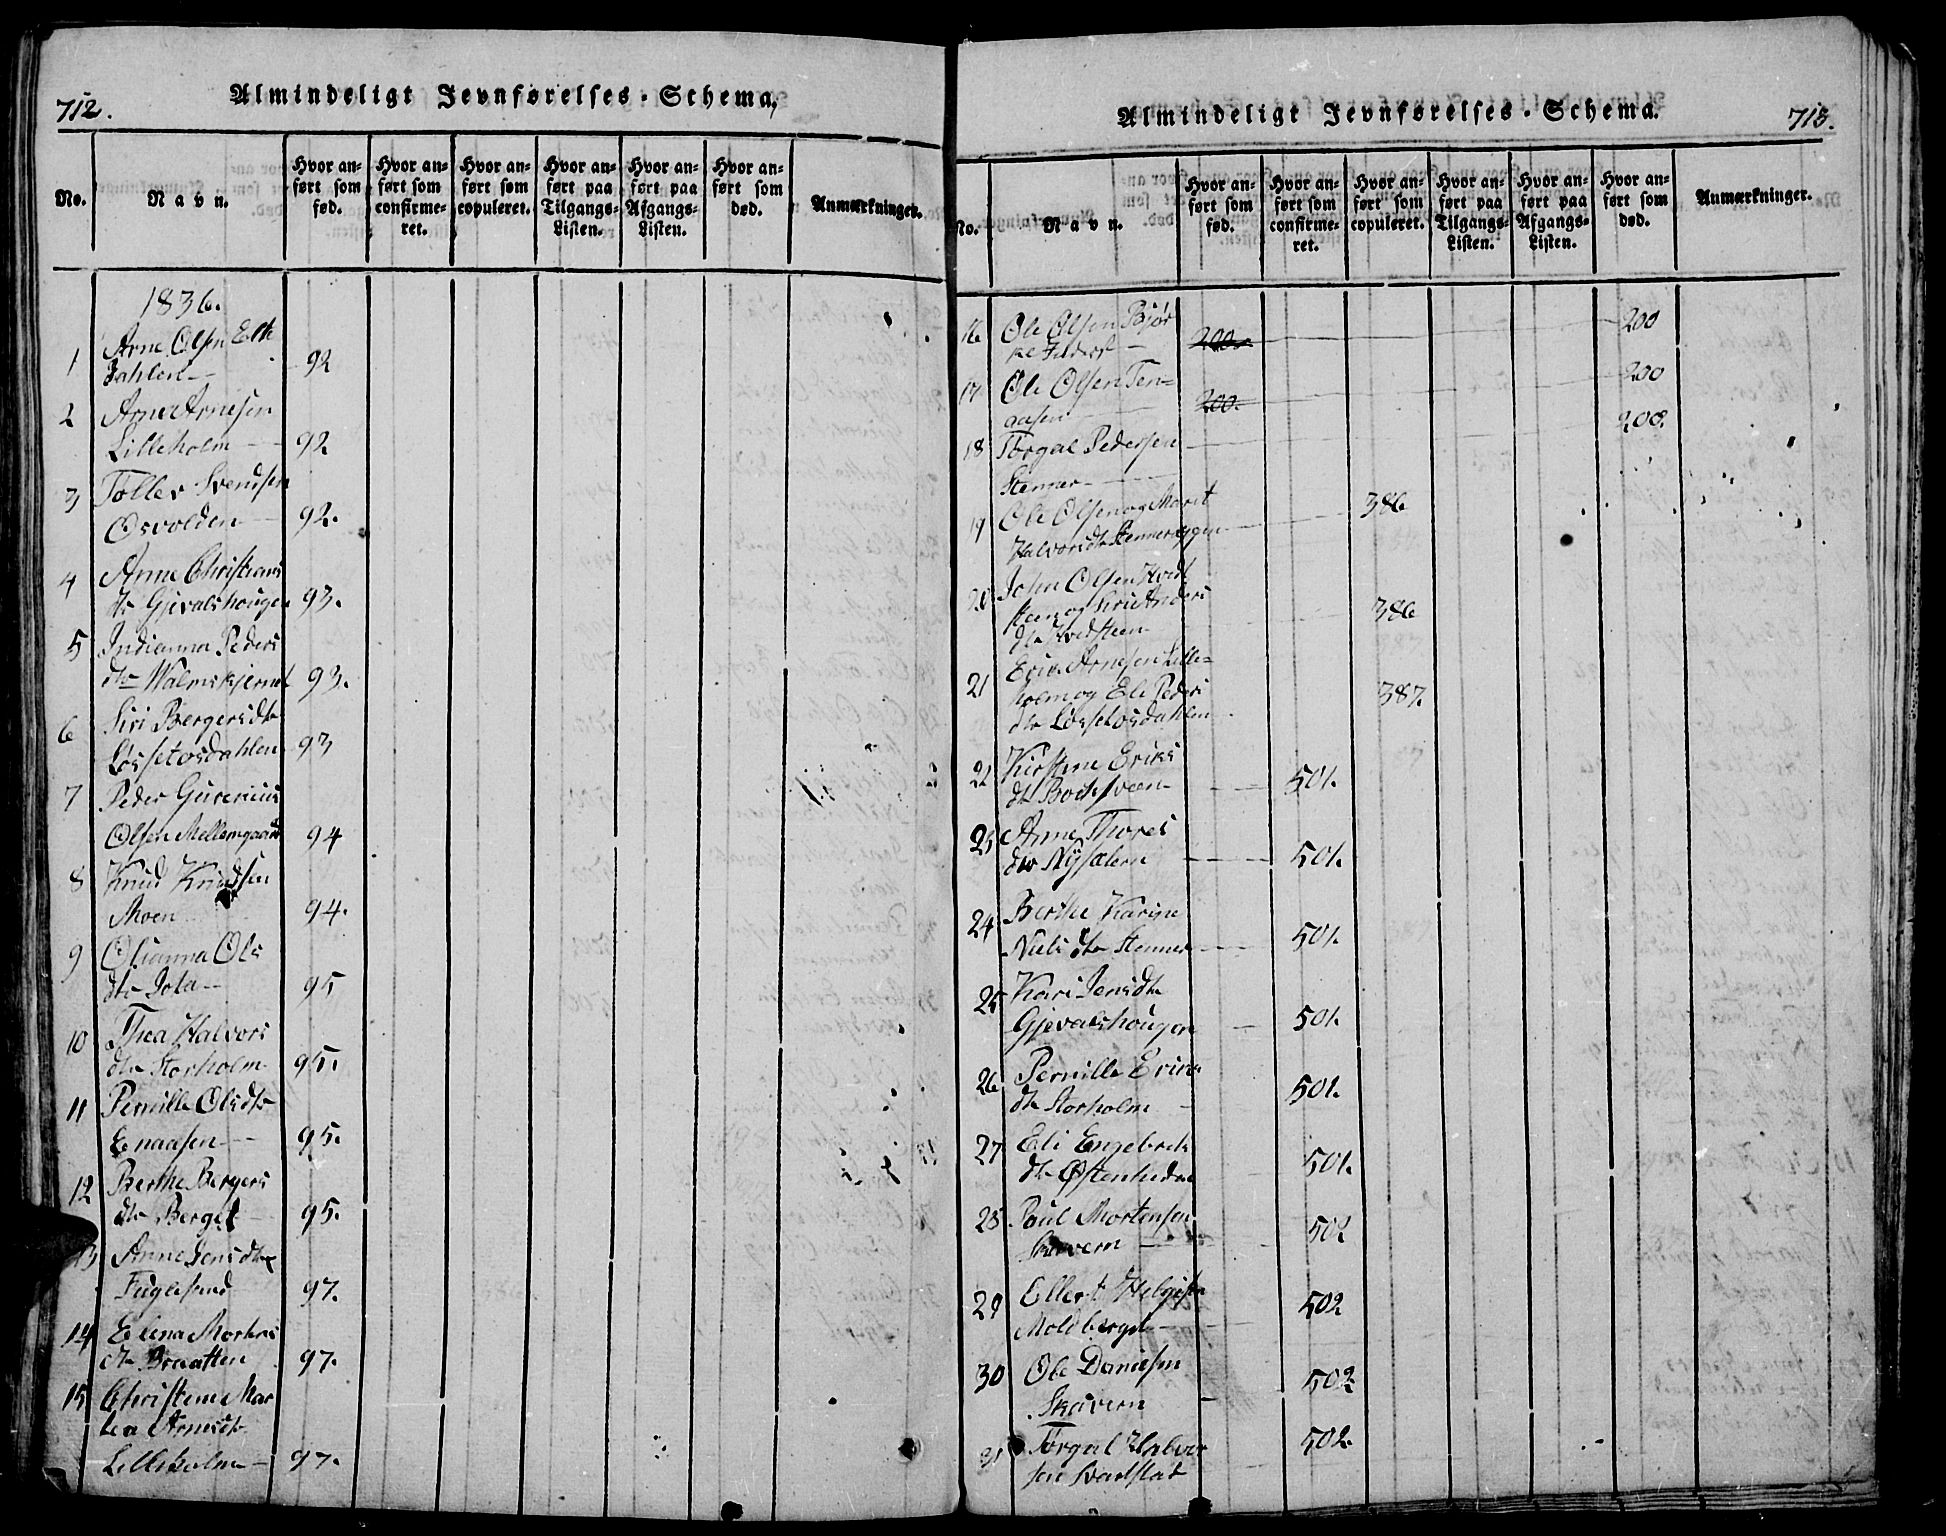 712.
Almindeligt Jevnførelses-Schema,
No.
Navn.
Hvor anført som fød.
Hvor anført som confirmeret.
Hvor anført som copuleret.
Hvor anført paa Tilgangs-Listen.
Hvor anført paa Afgangs-Listen.
Hvor anført som død.
Anmærkninger.
1836.
1 Arne Olsen
dahlen 92
2 Arne Arnesen
Lilleholm 92
3 Tollev Svendsen
Osvolden 92.
4 Anne Christians
dtr Gjevalshougen 93.
5 Indianna Peders
dtr Walmskjernet 93.
6 Siri Bergersdtr
Løssetosdahlen 93
7 Peder
Olsen Mellemgaard 94
8 Knud Knudsen
Moen 94.
9 Olianna Ols
dtr 95
10 Thea Halvors
dtr Storholm 95.
11 Pernille Olsdtr
Enaasen 95.
12 Berthe Bergers
dtr Berget 95.
13 Anne Jensdtr
Fuglesund 97.
14 Elena Mortens
dtr Braatten 97.
15 Christene Mar
tea Arnesdtr
Lilleholm 97.
Almindeligt Jevnførelses-Schema.
713.
No.
Navn.
Hvor anført som fød.
Hvor anført som confirmeret.
Hvor anført som copuleret.
Hvor anført paa Tilgangs-Listen.
Hvor anført paa Afgangs-Listen.
Hvor anført som død.
Anmærkninger.
16 Ole Olsen Bjør
200. 200
17 Ole Olsen Ten=
aasen 200. 200
18 Torgal Pedersen 200.
Stemer
19 Ole Olsen og Marit 386
Halvorsdtr
20 John Olsen Hvid
steen og Siri Anders 386
dtr Hvidsteen
21 Erik Arnesen Lille=
holm og Eli Peders 387.
dtr Løssetosdahlen
22 Kirstine Eriks
dtr 501.
23 Anne Thores
dtr Nysætern 501.
24 Berthe Karine
Nielsdtr Stemer 501.
25 Kari Jensdtr
Gjevalshougen 501.
26 Pernille Eriks
dtr Storholm 501.
27 Eli Engebrets
dtr Østenheden 501.
28 Paul Mortensen
Skavern 502
29 Ellert Helgesen
Moldberget 502
30 Ole Danielsen
Skavern 502
31 Torgal Halvor
sen 502.